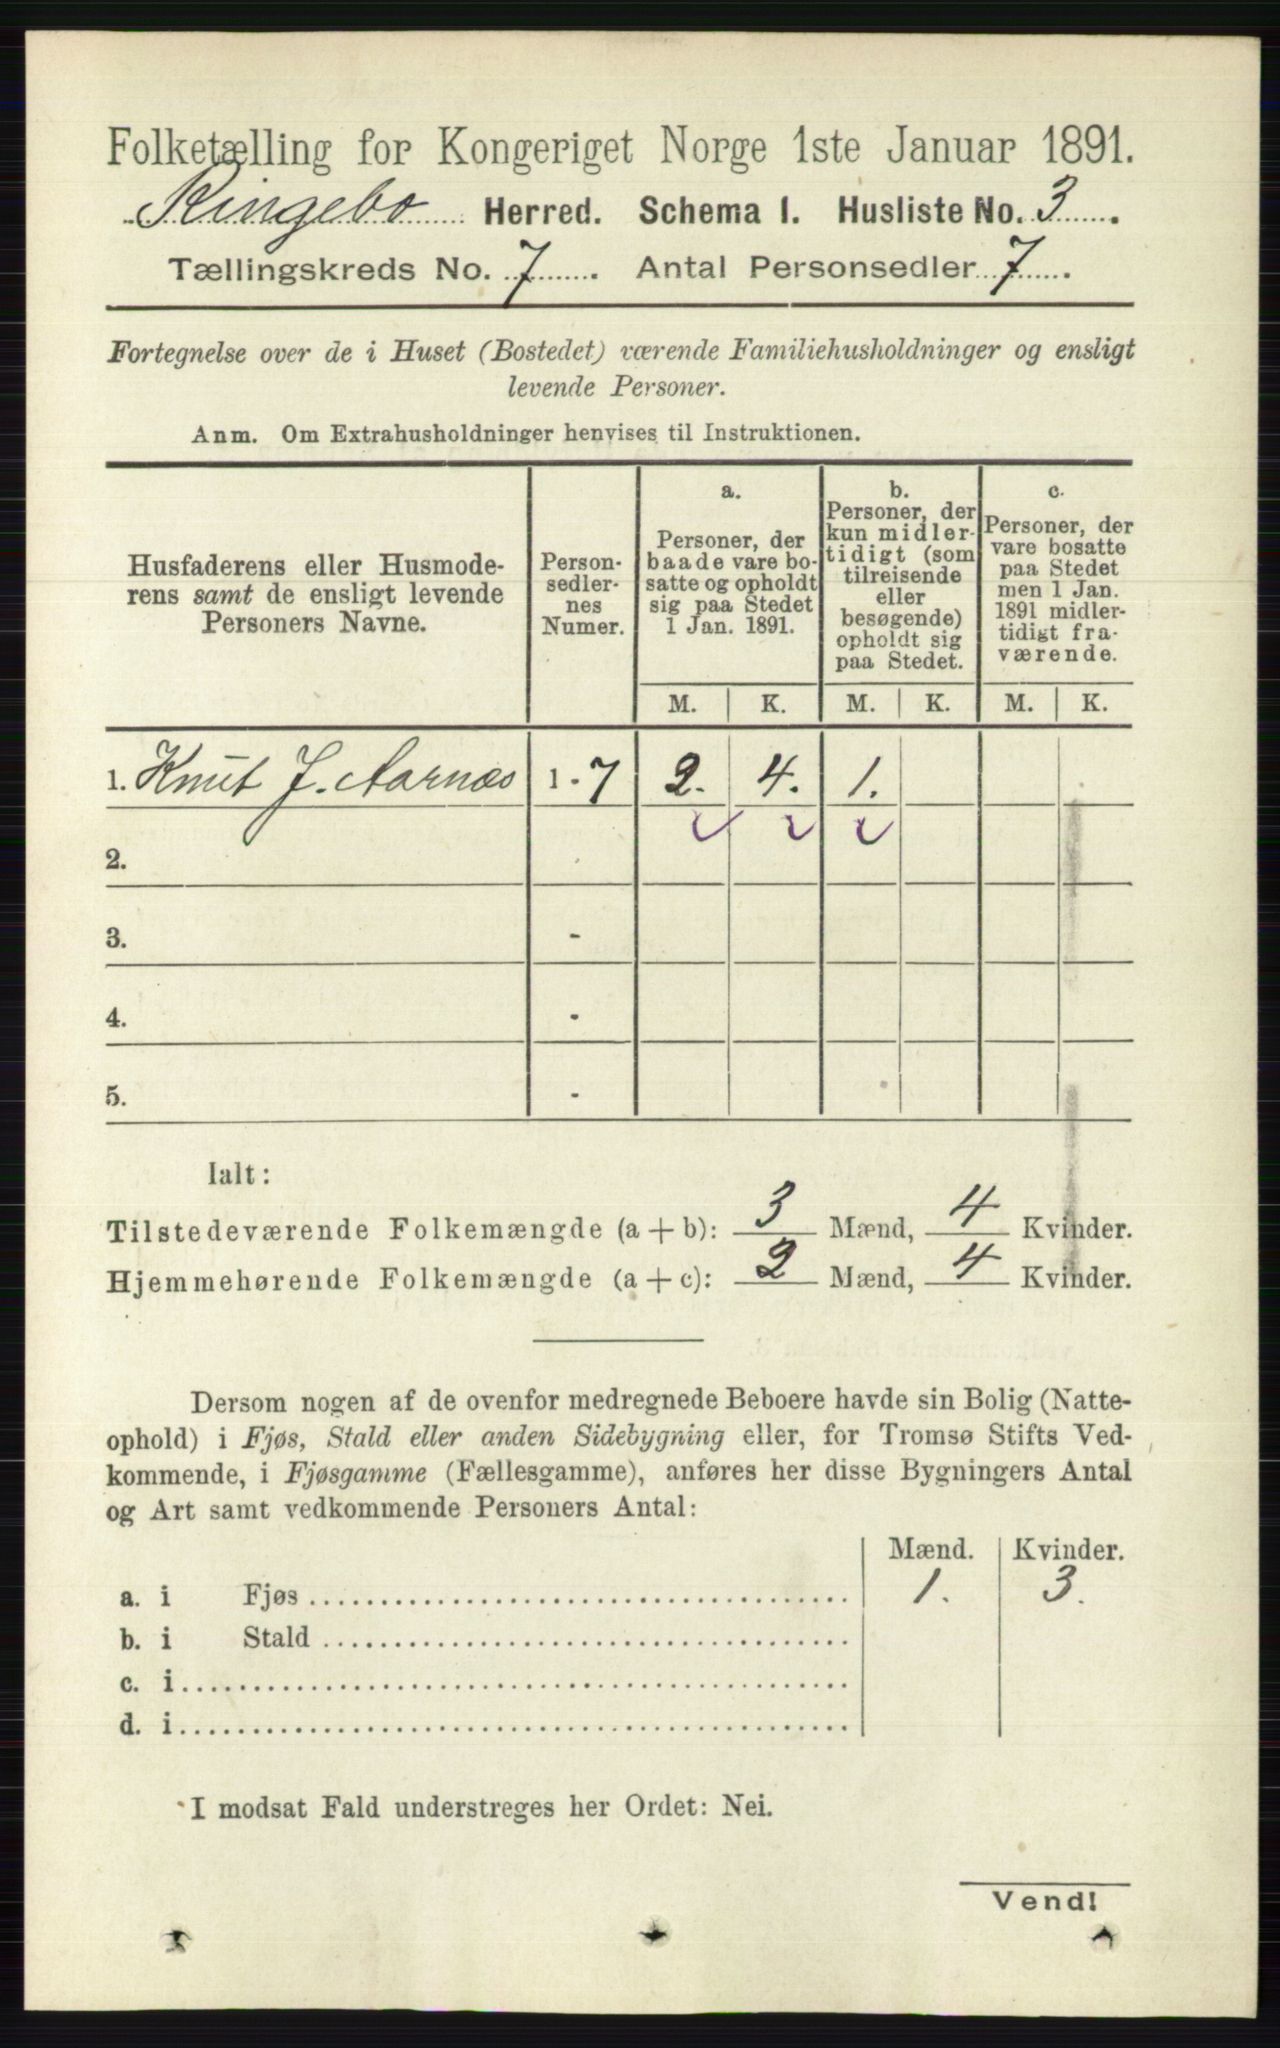 Folketælling for Kongeriget Norge 1ste Januar 1891.
Ringebo Herred. Schema I. Husliste No. 3.
Tællingskreds No. 7. Antal Personsedler 7.
Fortegnelse over de i Huset (Bostedet) værende Familiehusholdninger og ensligt
levende Personer.
Anm. Om Extrahusholdninger henvises til Instruktionen.
Husfaderens eller Husmode-
rens samt de ensligt levende
Personers Navne.
Person-
sedler-
nes
Numer.
a.
Personer, der
baade vare bo-
satte og opholdt
sig paa Stedet
1 Jan. 1891.
b.
Personer, der
kun midler-
tidigt (som
tilreisende
eller
besøgende)
opholdt sig
paa Stedet.
c.
Personer, der
vare bosatte
paa Stedet
men 1 Jan.
1891 midler-
tidigt fra-
værende.
M. K. M. K. M. K.
1. Knut J. Aarnæs 1-7 2. 4. 1.
2.
3. -
4. -
5. -
Ialt:
Tilstedeværende Folkemængde (a + b): 3 Mænd, 4 Kvinder.
Hjemmehørende Folkemængde (a + c): 2 Mænd, 4 Kvinder.
Dersom nogen af de ovenfor medregnede Beboere havde sin Bolig (Natte-
ophold) i Fjøs, Stald eller anden Sidebygning eller, for Tromsø Stifts Ved-
kommende, i Fjøsgamme (Fællesgamme), anføres her disse Bygningers Antal
og Art samt vedkommende Personers Antal:
Mænd. Kvinder.
a. i Fjøs 1. 3.
b. i Stald
c. i
d. i
I modsat Fald understreges her Ordet: Nei.
Vend!